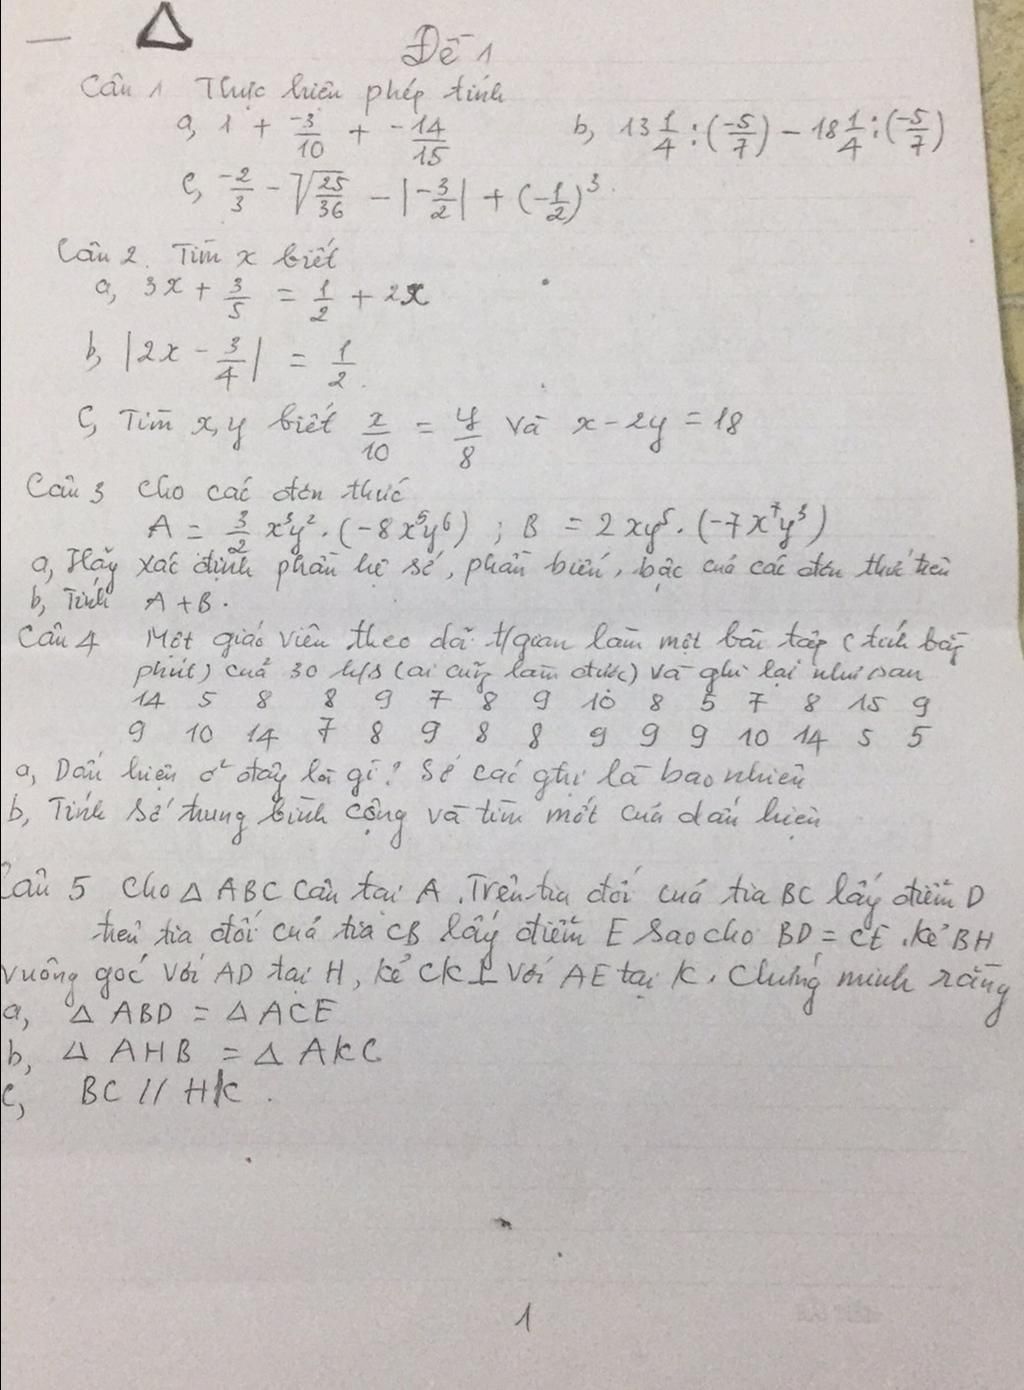 Đề 1
Câu 1 Thực hiện phép tính
a, 1 + -3/10 + -14/15 b, 13 1/4 : (-5/7) - 18 1/4 : (-5/7)
c, -2/3 - √25/36 - |-3/2| + (-1/2)³
Câu 2. Tìm x biết
a, 3x + 3/5 = 1/2 + 2x
b, |2x - 3/4| = 1/2.
C, Tìm x, y biết x/10 = y/8 và x - 2y = 18
Câu 3 cho các đơn thức
A = 3/2 x³y² . (-8x⁵y⁶) ; B = 2xy⁵ . (-7x⁷y³)
a, Hãy xác định phần hệ số, phần biến, bậc của các đơn thức trên
b, Tính A + B.
Câu 4 Một giáo viên theo dõi t/gian làm một bài tập (tính bằg
phút) của 30 h/s (ai cũg làm được) và ghi lại như sau
14 5 8 8 9 7 8 9 10 8 5 7 8 15 9
9 10 14 7 8 9 8 8 9 9 9 10 14 5 5
a, Dấu hiệu ở đây là gì? Số các gtrị là bao nhiêu
b, Tính số trung bình cộng và tìm mốt của dấu hiệu
Câu 5 cho △ ABC cân tại A. Trên tia đối của tia BC lấy điểm D
trên tia đối của tia CB lấy điểm E sao cho BD = CE. Kẻ BH
vuông góc với AD tại H, kẻ CK ⊥ với AE tại K. Chứng minh rằng
a, △ ABD = △ ACE
b, △ AHB = △ AKC
c, BC // HK.
1